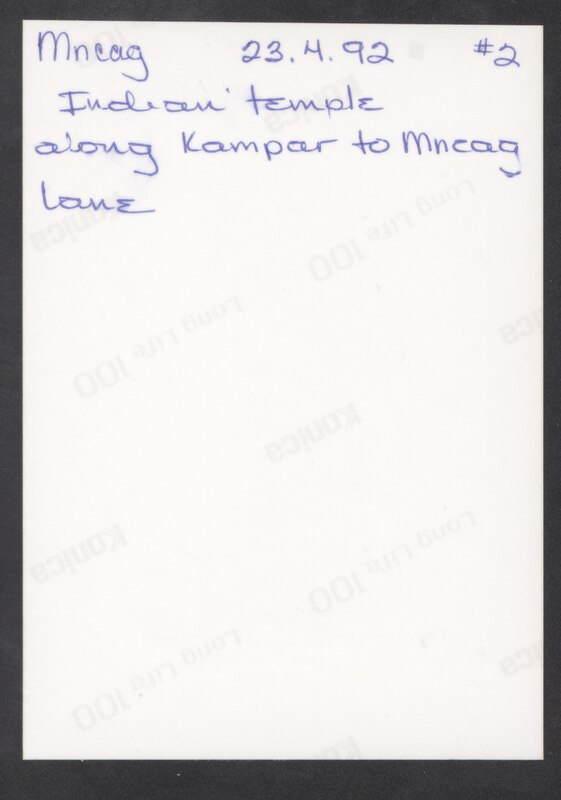 Mncag 23.4.92 #2
Indian temple
along Kampar to Mncag
Lane
Konica
Long Life 100
Konica
Long Life 100
Konica
Konica
Long Life 100
Konica
Long Life 100
Konica